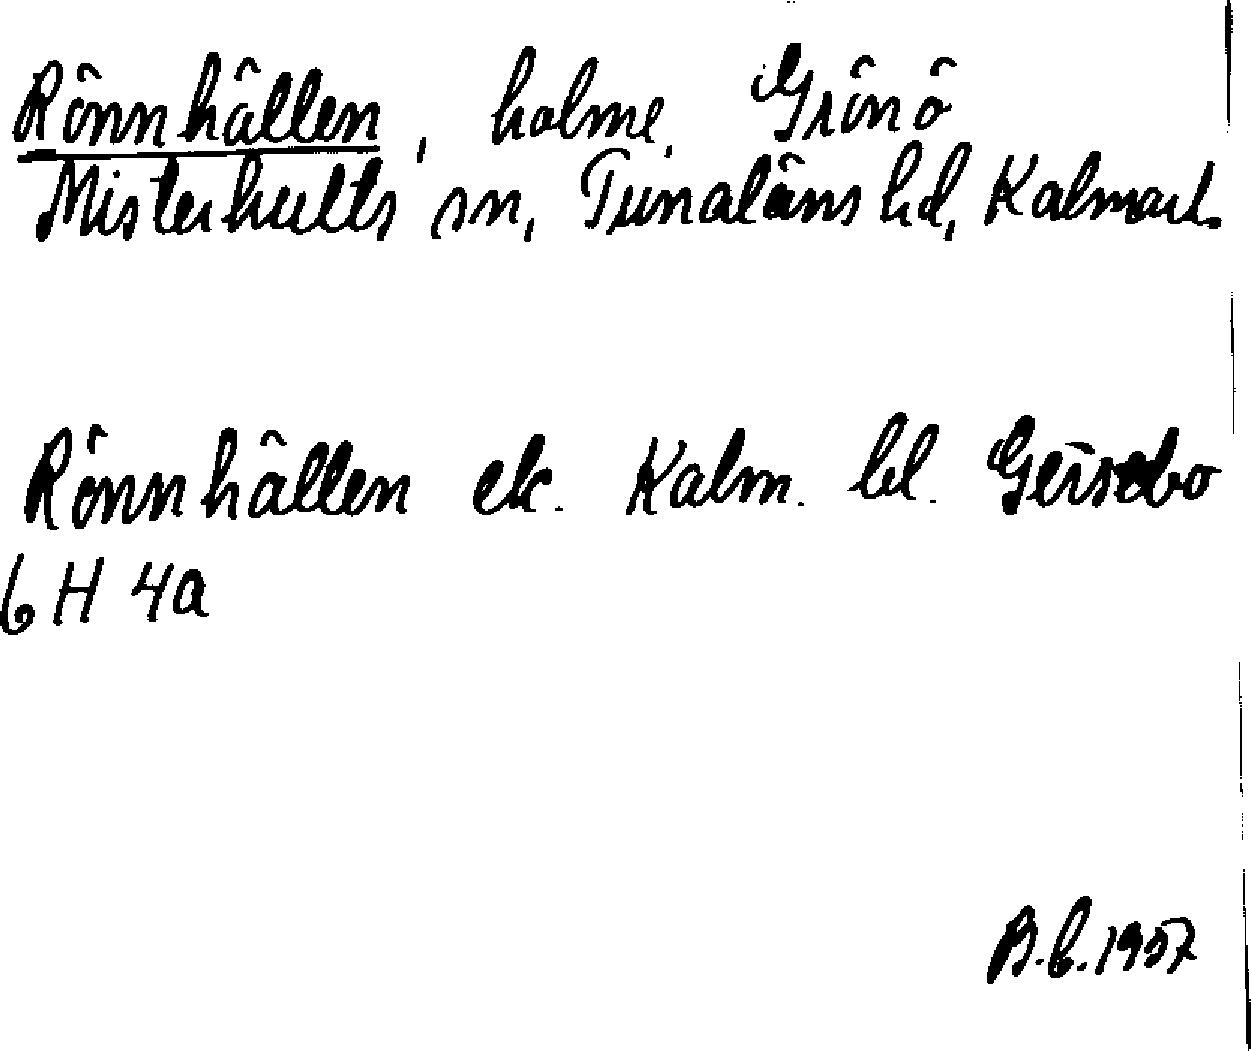 Rönnhällen, holme, Grönö
Misterhults sn, Tunaläns hd, Kalmar l.
Rönnhällen ek. Kalm. bl. Geisebo
6H 4a
B.L. 1957